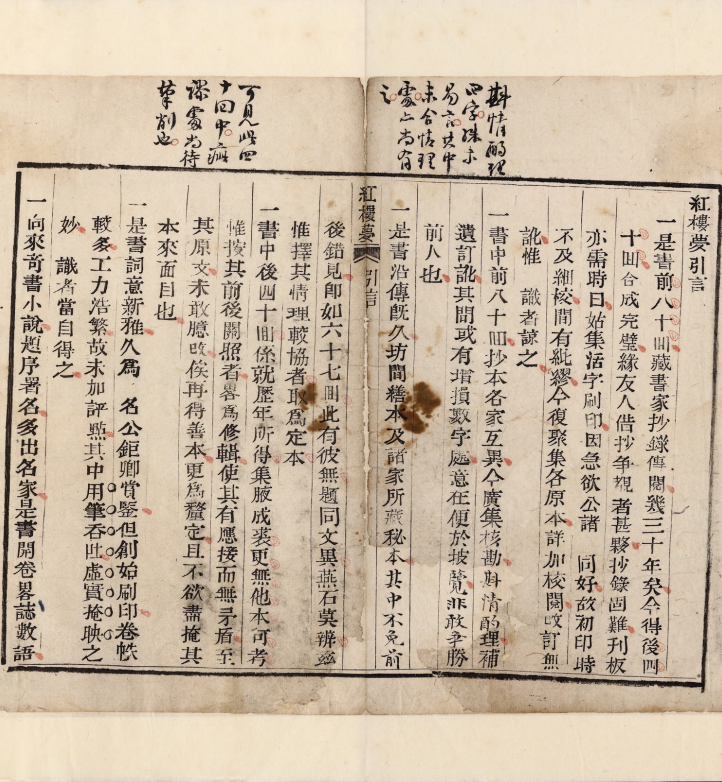 斟情酌理
四字殊未
易言其中
未合情理
處亦尚有
之
可見此四
十回中疵
謬處尚待
筆削也
紅樓夢引言
一是書前八十囬藏書家抄錄傳閱幾三十年矣今得後四
十囬合成完璧緣友人借抄爭覩者甚夥抄錄固難刊板
亦需時日姑集活字刷印因急欲公諸 同好故初印時
不及細校間有紕繆今復聚集各原本詳加校閱改訂無
訛惟 識者諒之
一書中前八十囬抄本各家互異今廣集核勘斟情酌理補
遺訂訛其間或有增損數字處意在便於披覽非敢爭勝
前人也
一是書沿傳旣久坊間繕本及諸家所藏秘本其中不免前
紅樓夢 引言
後錯見即如六十七囬此有彼無題同文異燕石莫辨兹
惟擇其情理較協者取爲定本
一書中後四十囬係就歷年所得集腋成裘更無他本可考
惟按其前後關照者畧爲修輯使其有應接而無矛盾至
其原文未敢臆改俟再得善本更爲釐定且不欲盡掩其
本來面目也
一是書詞意新雅久爲 名公鉅卿賞鑒但創始刷印卷帙
較多工力浩繁故未加評㸃其中用筆吞吐虛實掩映之
妙 識者當自得之
一向來奇書小說題序署名多出名家是書開卷畧誌數語